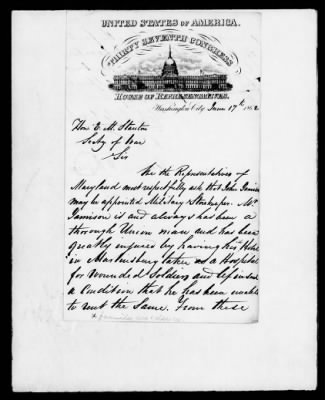 UNITED STATES OF AMERICA.
THIRTY SEVENTH CONGRESS
HOUSE OF REPRESENTATIVES.
Washington City, June 17th 1862
Hon E. M. Stanton
Secty of War
Sir
We the Representatives of
Maryland most respectfully ask that John Jamison
may be appointed Military Storekeeper. Mr
Jamison is and always has been a
thorough Union man and has been
greatly injured by having his Hotel
in Martinsburg taken as a Hospital
for wounded Soldiers and left in such
a Condition that he has been unable
to rent the Same. From these